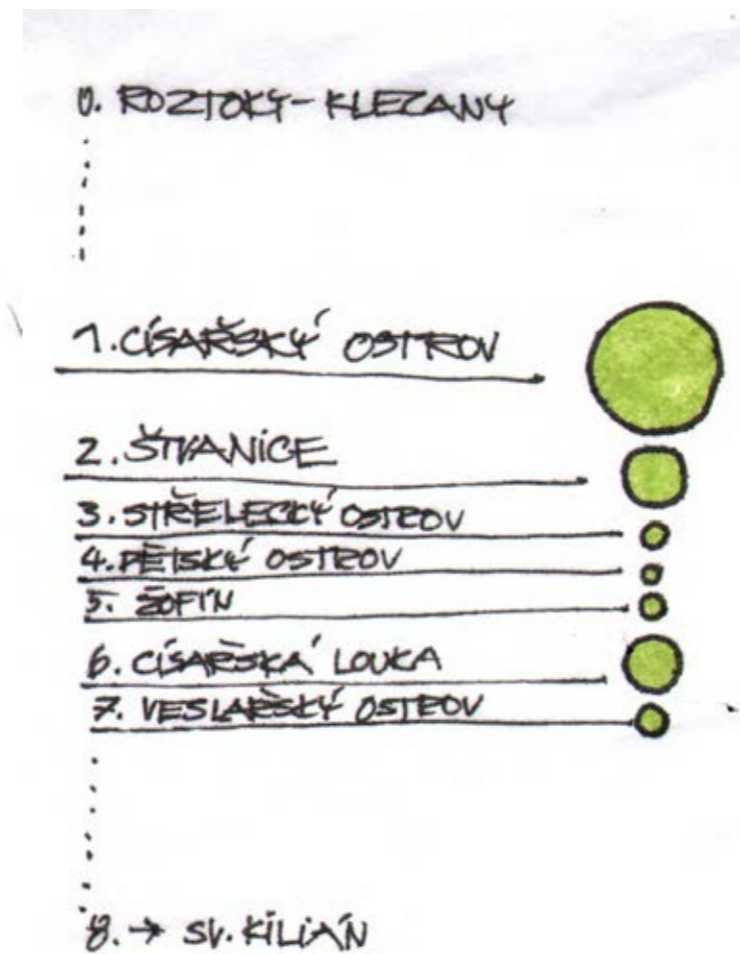 0. ROZTOKY-KLECANY
1. CÍSAŘSKÝ OSTROV
2. ŠTVANICE
3. STŘELECKÝ OSTROV
4. DĚTSKÝ OSTROV
5. ŽOFÍN
6. CÍSAŘSKÁ LOUKA
7. VESLAŘSKÝ OSTROV
8. → SV. KILIÁN